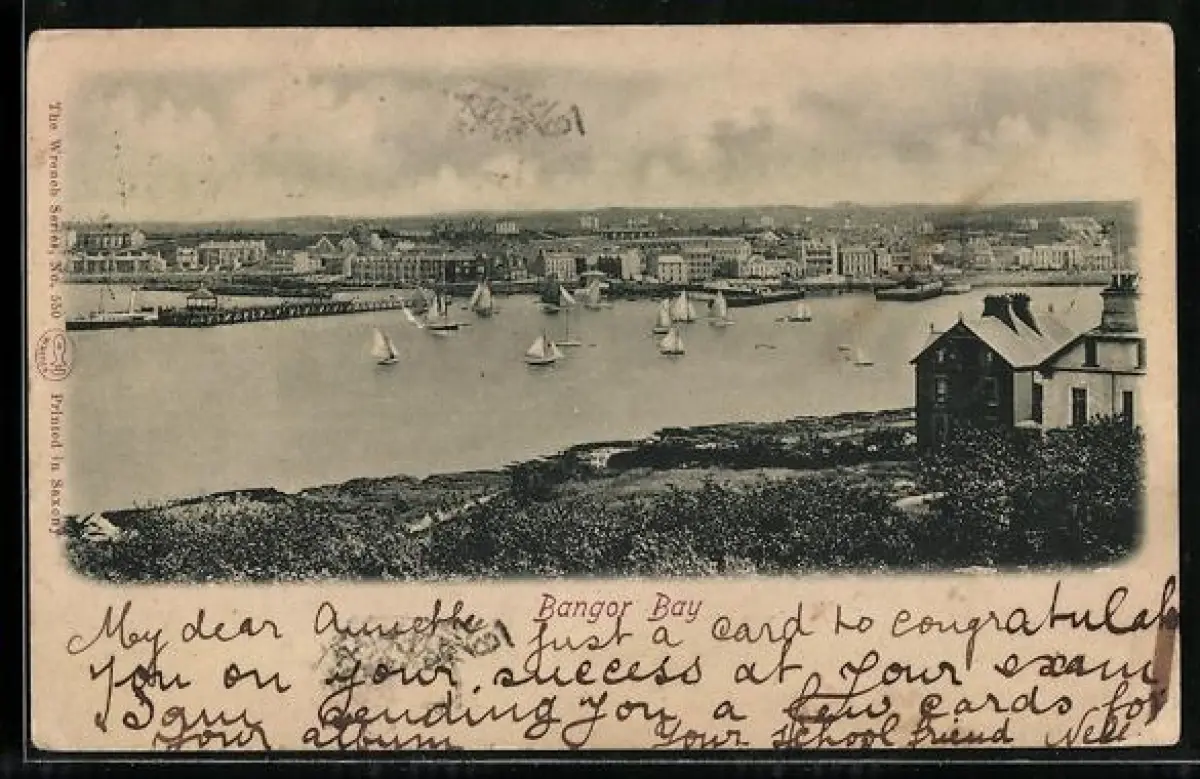 The Wrench Series, No. 550
Printed in Saxony
Bangor Bay
My dear Annette Just a card to congratulate
you on your success at your exam
I am sending you a few cards for
your album your school friend Nell